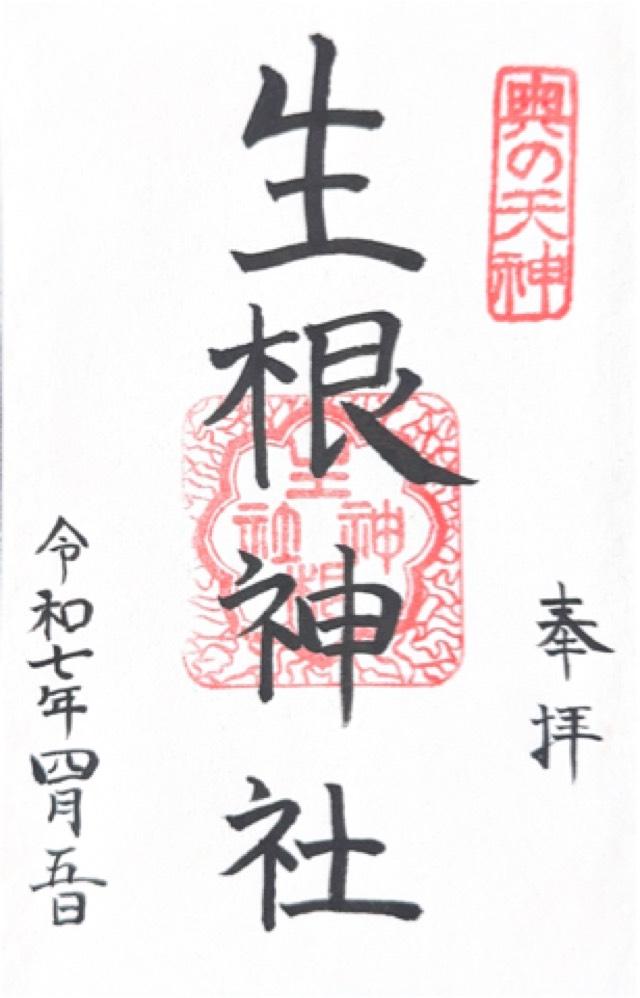 奥の天神
奉拝
生根神社
生根神社
令和七年四月五日